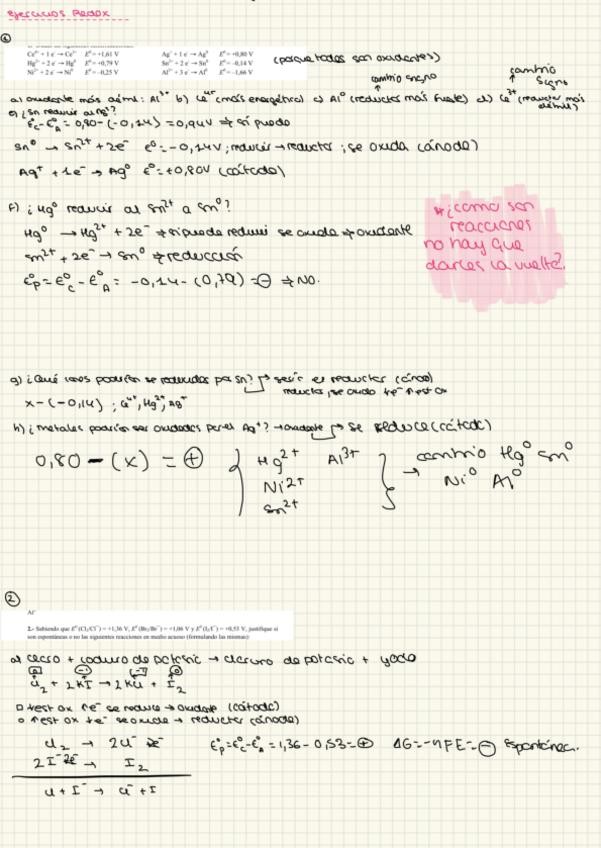 ejercicios Redox
①
Ce⁴⁺+1 e⁻ → Ce³⁺ E⁰=+1,61 V Ag⁺+1 e⁻ → Ag⁰ E⁰=+0,80 V (porque todos son oxidantes)
Hg²⁺+2 e⁻ → Hg⁰ E⁰=+0,79 V Sn²⁺+2 e⁻ → Sn⁰ E⁰=-0,14 V
Ni²⁺+2 e⁻ → Ni⁰ E⁰=-0,25 V Al³⁺+3 e⁻ → Al⁰ E⁰=-1,66 V
cambio signo cambio signo
a) oxidante más débil: Al³⁺ b) Ce⁴⁺ (más energético) c) Al⁰ (reductor más fuerte) d) Ce³⁺ (reductor más débil)
e) ¿Sn reducir al Ag⁺?
ε°C-ε°A = 0,80-(-0,14) = 0,94V ⇒ sí puede
Sn⁰ → Sn²⁺ + 2e⁻ ε⁰=-0,14V; reducir → reductor; se oxida (ánodo)
Ag⁺ + 1e⁻ → Ag⁰ ε⁰=+0,80V (cátodo)
f) ¿Hg⁰ reducir al Sn²⁺ a Sn⁰?
Hg⁰ → Hg²⁺ + 2e⁻ ⇒ si puede reducir se oxida ⇒ oxidante
Sn²⁺ + 2e⁻ → Sn⁰ ⇒ reducción
ε°P = ε°C - ε°A = -0,14-(0,79) = ⊖ ⇒ NO.
*¿como son
reacciones
no hay que
darles la vuelta?
g) ¿Qué iones podrían ser reducidos por Sn? ser el reductor (ánodo)
reductor, se oxida
x-(-0,14) ; Ce⁴⁺, Hg²⁺, Ag⁺
h) ¿metales podrían ser oxidados por el Ag⁺? → oxidante → se reduce (cátodo)
0,80 - (x) = ⊕ } Hg²⁺ Al³⁺ } → cambio Hg⁰ Sn⁰
Ni²⁺ Ni⁰ Al⁰
Sn²⁺
②
Al⁰
2.- Sabiendo que E⁰(Cl₂/Cl⁻) = +1,36 V, E⁰(Br₂/Br⁻) = +1,06 V y E⁰(I₂/I⁻) = +0,53 V, justifique si
son espontáneas o no las siguientes reacciones en medio acuoso (formulando las mismas):
a) cloro + ioduro de potasio → cloruro de potasio + yodo
Cl₂ + 2KI → 2KCl + I₂
se reduce → oxidante (cátodo)
se oxida → reductor (ánodo)
Cl₂ → 2Cl⁻ 2e⁻ ε°P=ε°C-ε°A=1,36-0,53=⊕ ΔG=-nFE=⊖ Espontánea.
2I⁻ 2e⁻ → I₂
Cl + I⁻ → Cl⁻ + I